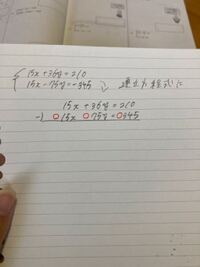 15x+36y=210
15x-75y=-345 連立方程式に
15x+36y=210
-) 15x 75y= 345